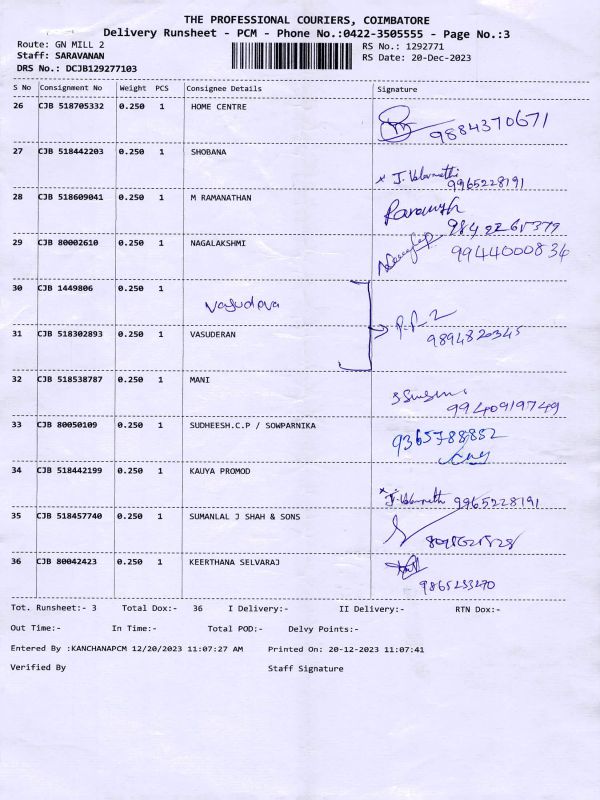 THE PROFESSIONAL COURIERS, COIMBATORE
Delivery Runsheet - PCM - Phone No.:0422-3505555 - Page No.:3
Route: GN MILL 2 RS No.: 1292771
Staff: SARAVANAN RS Date: 20-Dec-2023
DRS No.: DCJB129277103
S No Consignment No Weight PCS Consignee Details Signature
26 CJB 518705332 0.250 1 HOME CENTRE
9884370671
27 CJB 518442203 0.250 1 SHOBANA
9965228191
28 CJB 518609041 0.250 1 M RAMANATHAN
29 CJB 80002610 0.250 1 NAGALAKSHMI 9944000836
30 CJB 1449806 0.250 1
Vasudeva
31 CJB 518302893 0.250 1 VASUDERAN 9894820345
32 CJB 518538787 0.250 1 MANI
9940919749
33 CJB 80050109 0.250 1 SUDHEESH.C.P / SOWPARNIKA
34 CJB 518442199 0.250 1 KAUYA PROMOD
9965228191
35 CJB 518457740 0.250 1 SUMANLAL J SHAH & SONS
36 CJB 80042423 0.250 1 KEERTHANA SELVARAJ
Tot. Runsheet:- 3 Total Dox:- 36 I Delivery:- II Delivery:- RTN Dox:-
Out Time:- In Time:- Total POD:- Delvy Points:-
Entered By :KANCHANAPCM 12/20/2023 11:07:27 AM Printed On: 20-12-2023 11:07:41
Verified By Staff Signature